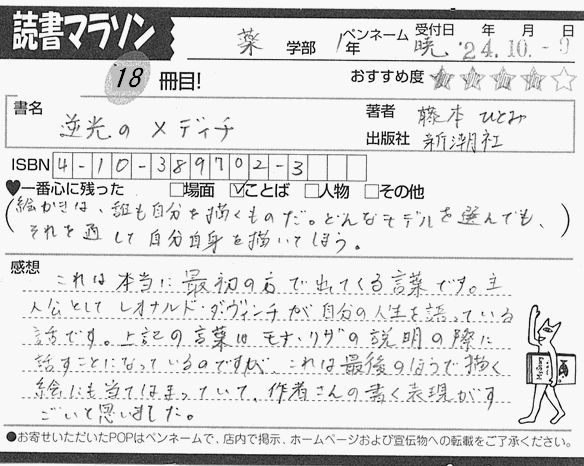 読書マラソン
薬 学部 1年 ペンネーム 暁 受付日 年 月 日 '24.10.-9
18 冊目! おすすめ度 ★★★★☆
書名 逆光のメディチ
著者 藤本ひとみ
出版社 新潮社
ISBN 4-10-389702-3
♥一番心に残った □場面 ☑ことば □人物 □その他
(絵かきは、誰も自分を描くものだ。どんなモデルを選んでも、
それを通して自分自身を描いてしまう。)
感想
これは本当に最初の方で出てくる言葉です。主
人公としてレオナルド・ダヴィンチが自分の人生を語っている
話です。上記の言葉はモナ・リザの説明の際に
話すことになっているのですが、これは最後のほうで描く
絵にも当てはまっていて、作者さんの書く表現がす
ごいと思いました。
●お寄せいただいたPOPはペンネームで、店内で掲示、ホームページおよび宣伝物への転載をご了承ください。